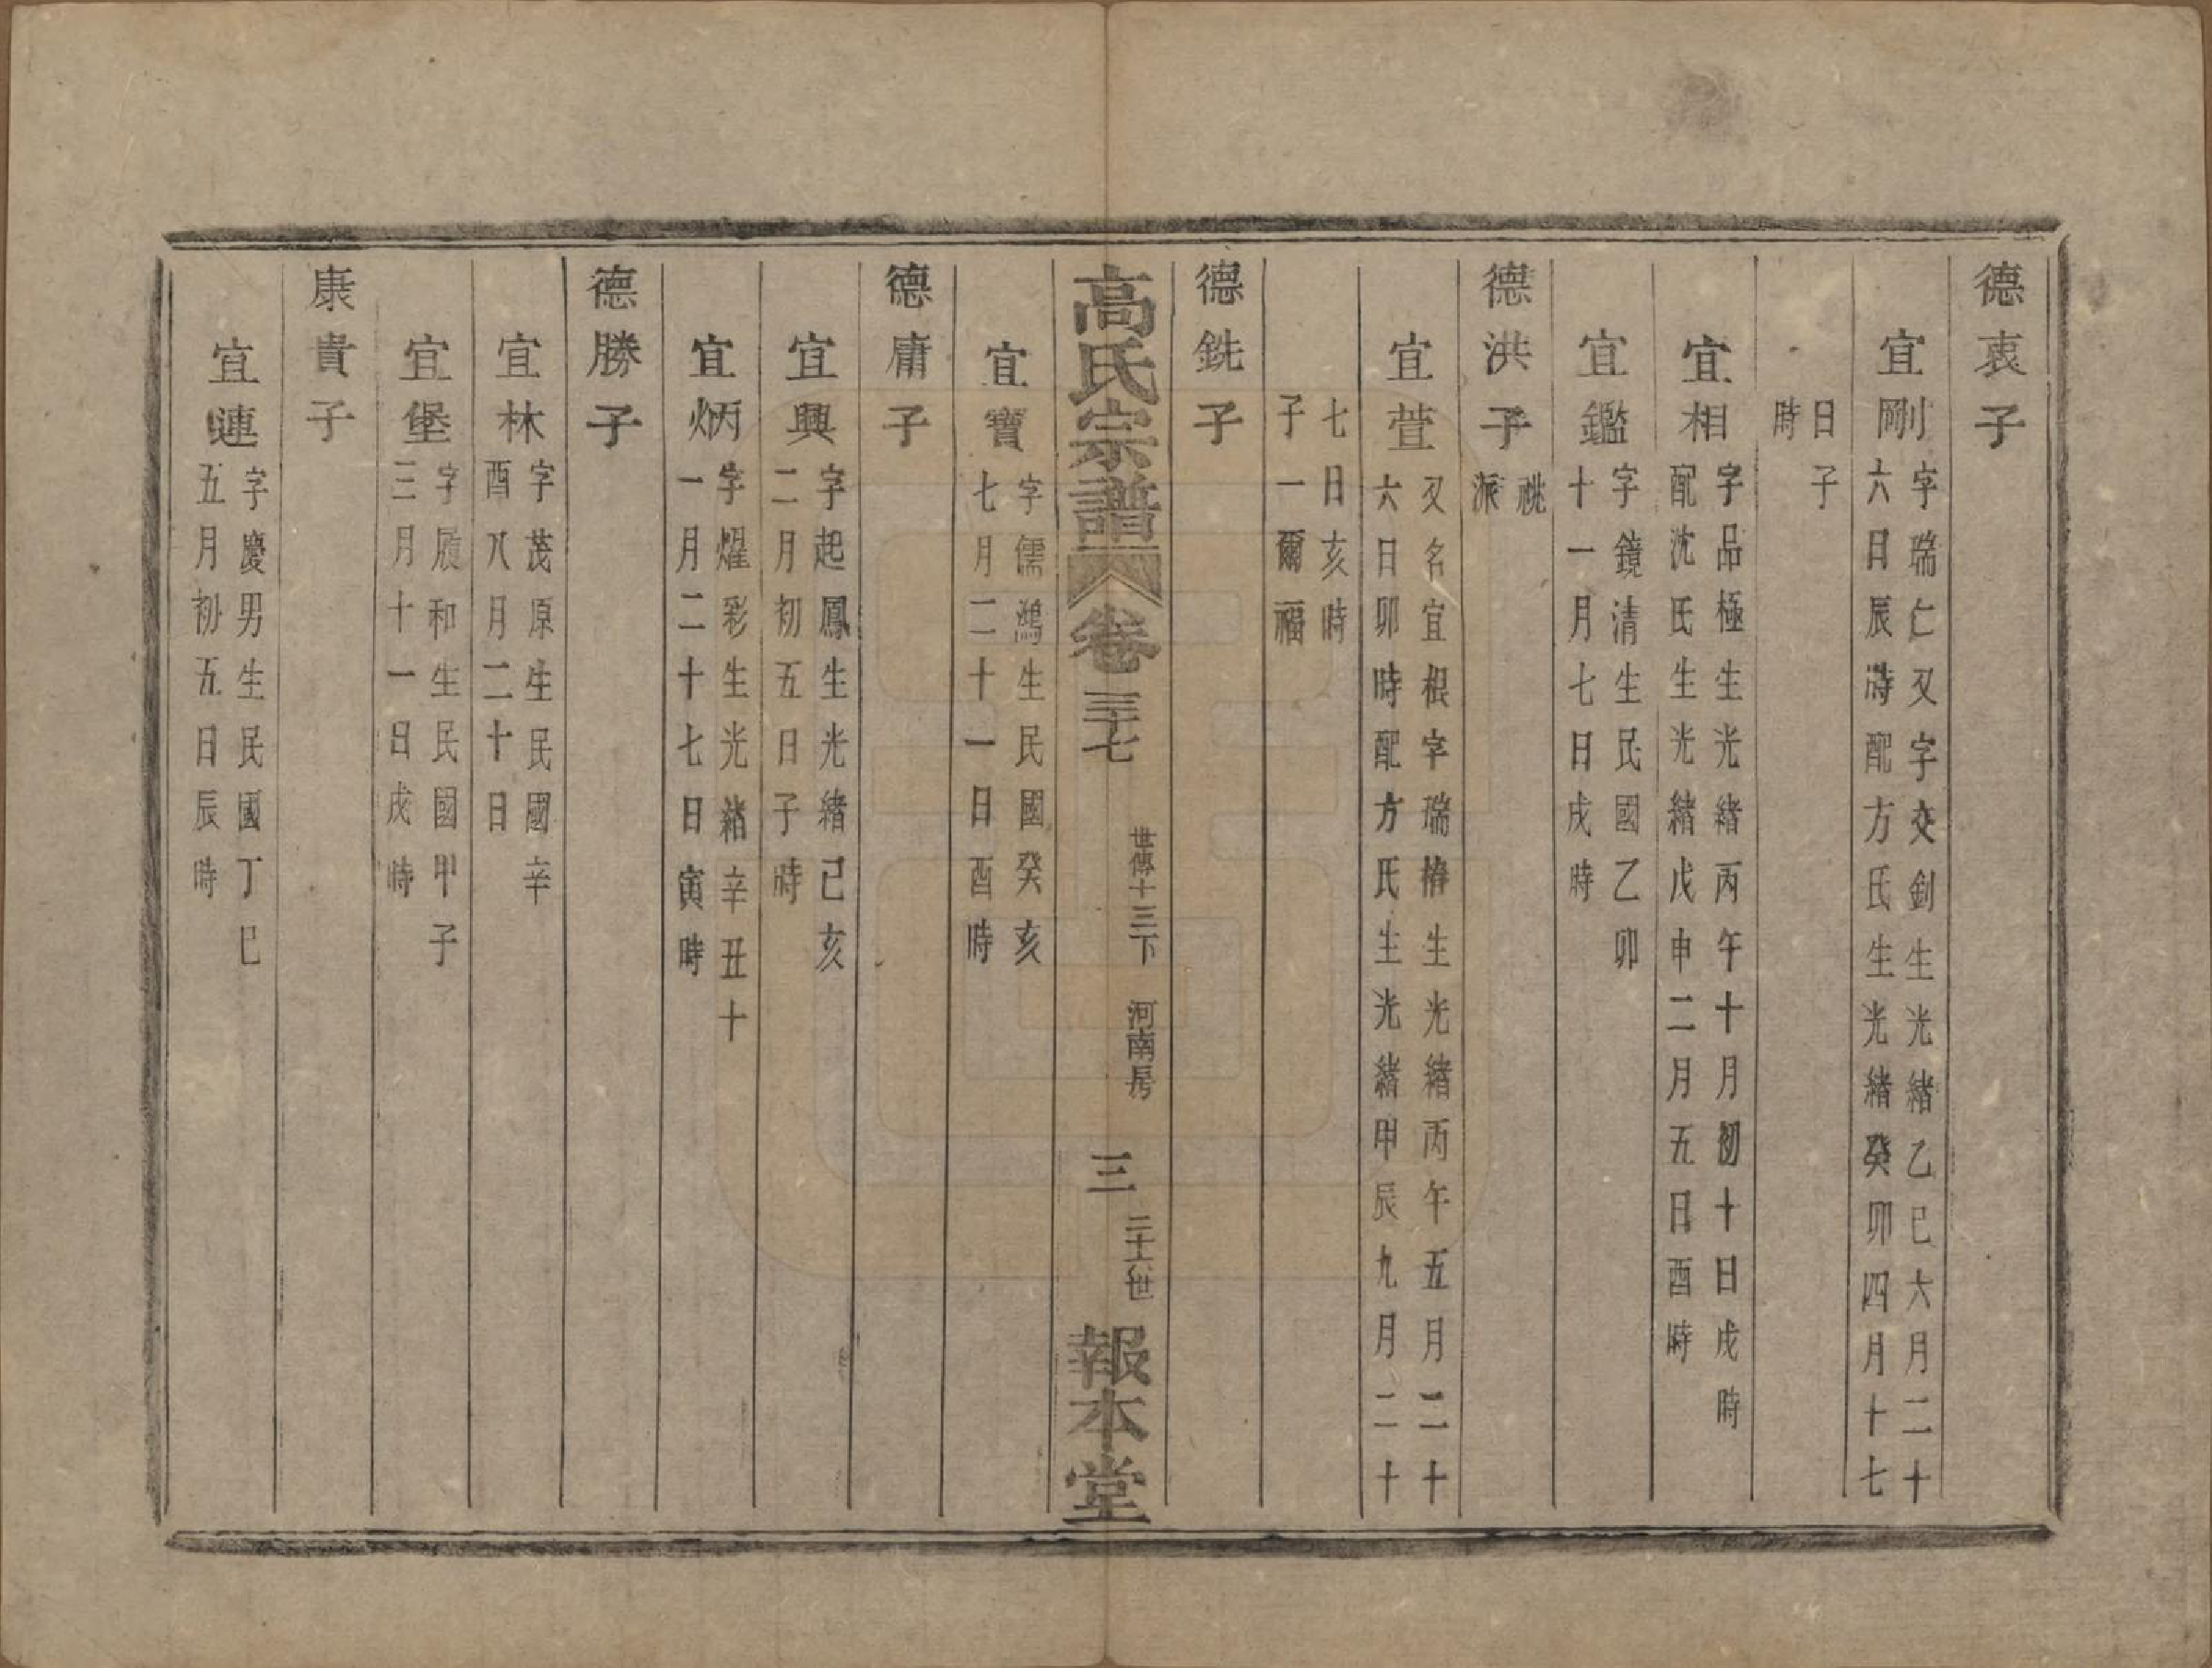 德衷子
宜剛 字瑞仁又字交釗生光緒乙巳六月二十
六日辰時配方氏生光緒癸卯四月十七
日子
時
宜相 字品極生光緒丙午十月初十日戌時
配沈氏生光緒戊申二月五日酉時
宜鑑 字鏡清生民國乙卯
十一月七日戌時
德洪子 祧
派
宜萱 又名宜根字瑞椿生光緒丙午五月二十
六日卯時配方氏生光緒甲辰九月二十
七日亥時
子一爾福
德銑子
高氏宗譜 卷三十七 世傳十三下 河南房 三 二十六世 報本堂
宜寶 字儒鴻生民國癸亥
七月二十一日酉時
德庸子
宜興 字起鳳生光緒己亥
二月初五日子時
宜炳 字燿彩生光緒辛丑十
一月二十七日寅時
德勝子
宜林 字茂原生民國辛
酉八月二十日
宜堡 字履和生民國甲子
三月十一日戌時
康貴子
宜連 字慶男生民國丁巳
五月初五日辰時